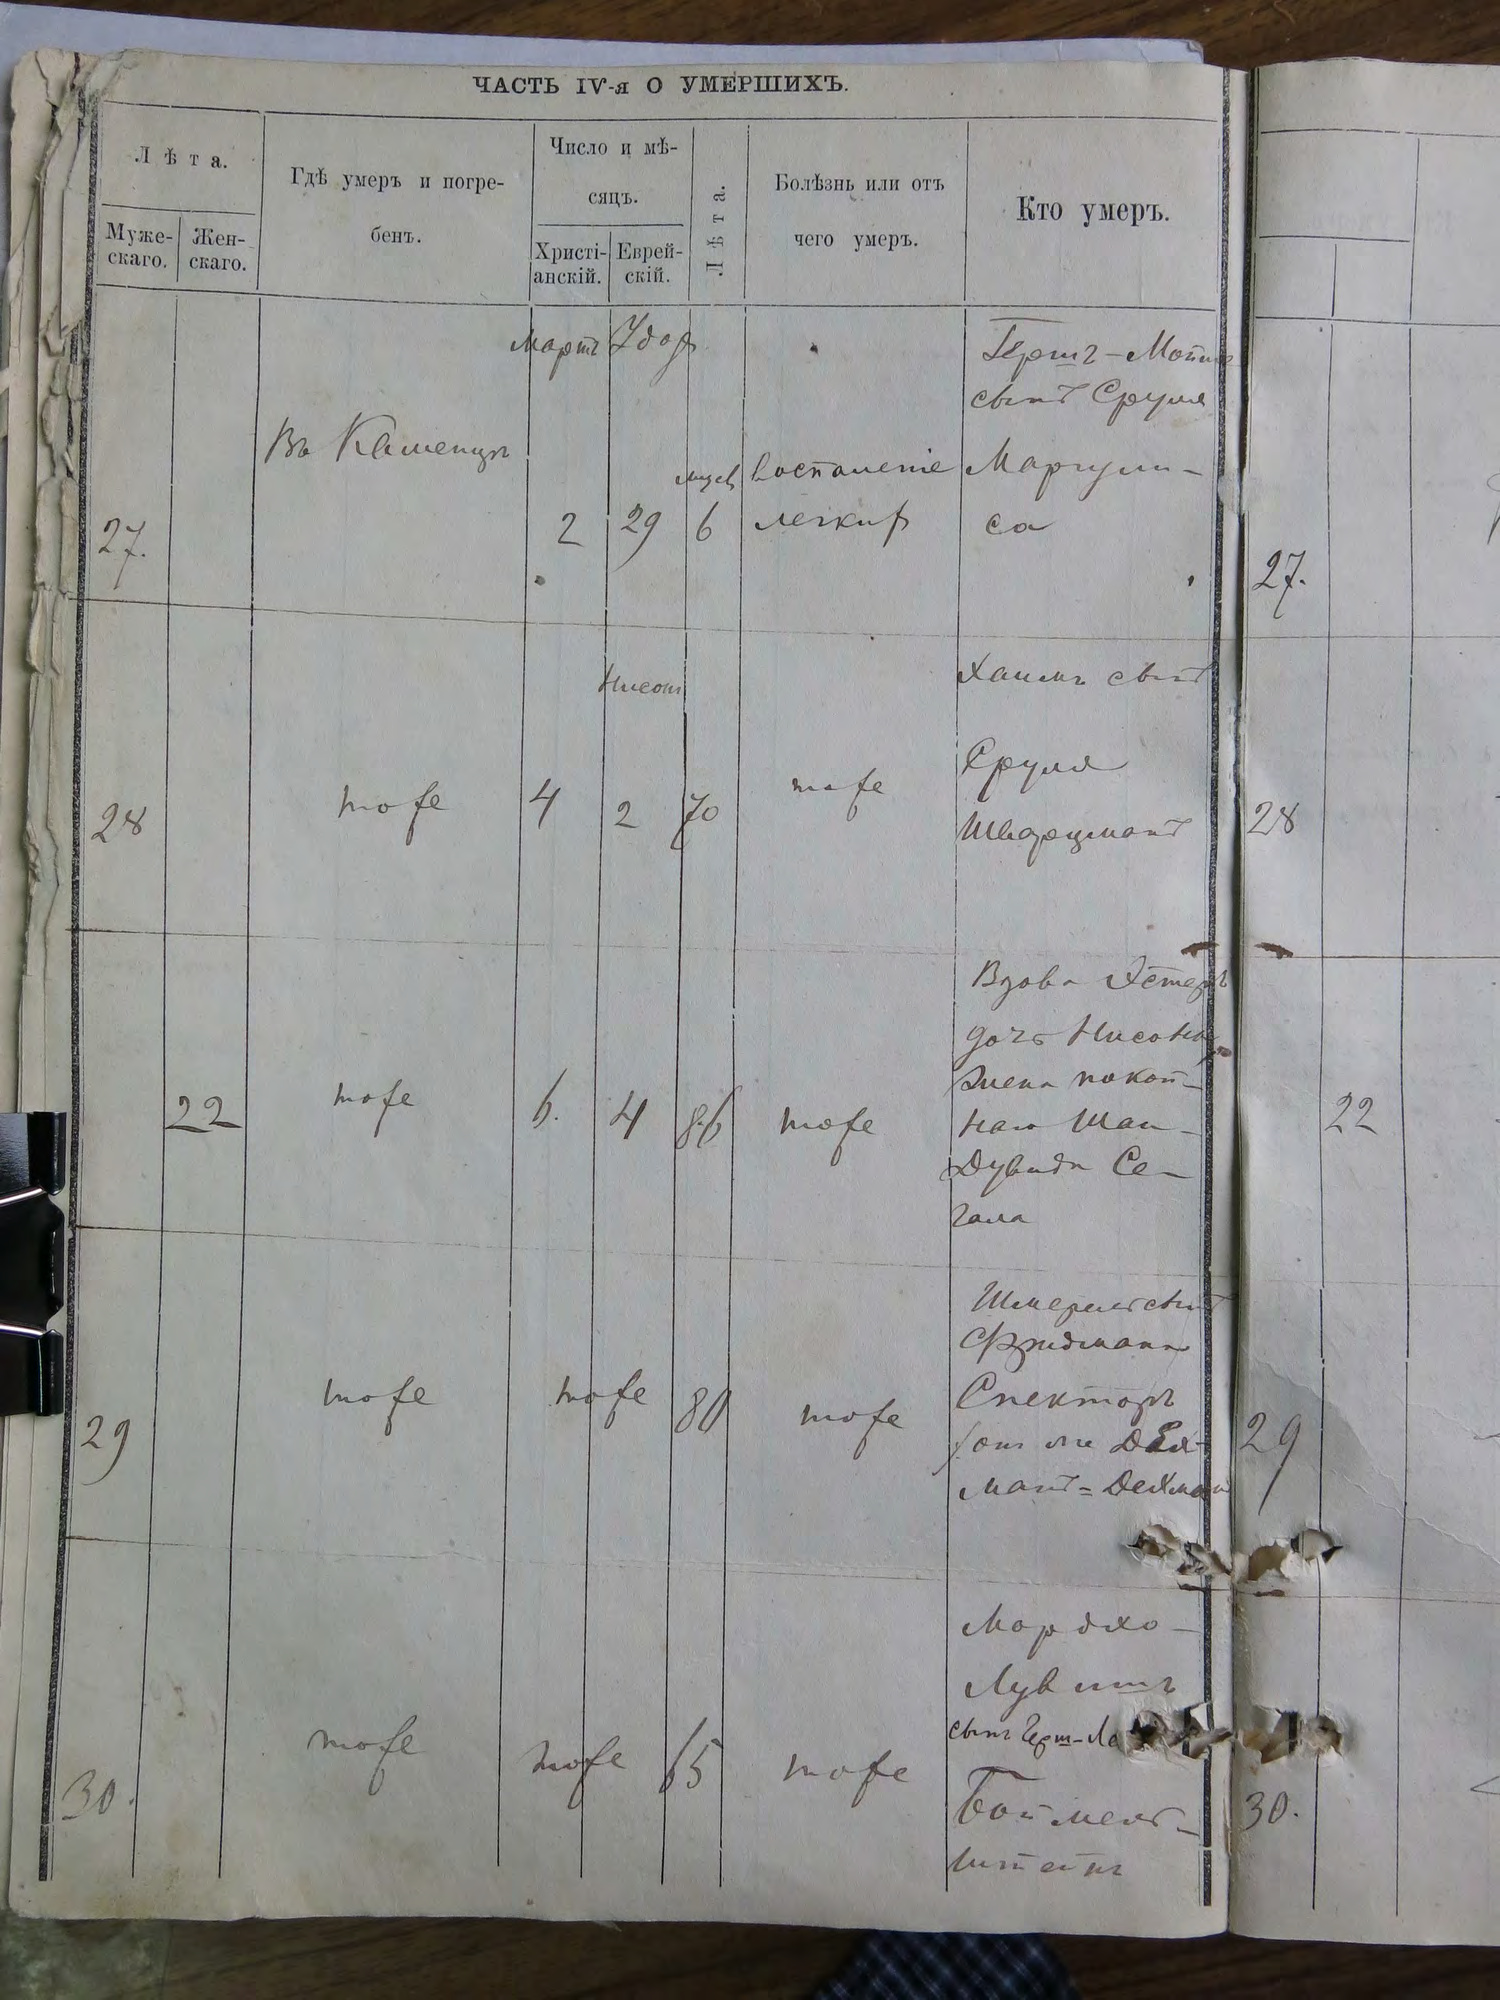 ЧАСТЬ IV-я О УМЕРШИХЪ.
Лѣта.
Муже-
скаго.
Жен-
скаго.
Гдѣ умеръ и погре-
бенъ.
Число и мѣ-
сяцъ.
Христі-
анскій.
Еврей-
скій.
Лѣта.
Болѣзнь или отъ
чего умеръ.
Кто умеръ.
27.
Въ Каменцѣ
Мартъ
2
29
6
Воспаленіе
легкихъ
сынъ Сруля
Маргули-
са
27.
28
тоже
4
Нисонъ
2
70
тоже
Хаимъ сынъ
Сруля
Шварцманъ
28
22
тоже
6.
4
86
тоже
Вдова Эстеръ
дочь Нисона
жена покой-
наго
Дувида Се-
гала
22
29
тоже
тоже
80
тоже
Шмерель сынъ
Фридмана
Спекторъ
29
30.
тоже
тоже
65
тоже
Мордхо-
сынъ Герш-Ле
Бойmель-
штейнъ
30.